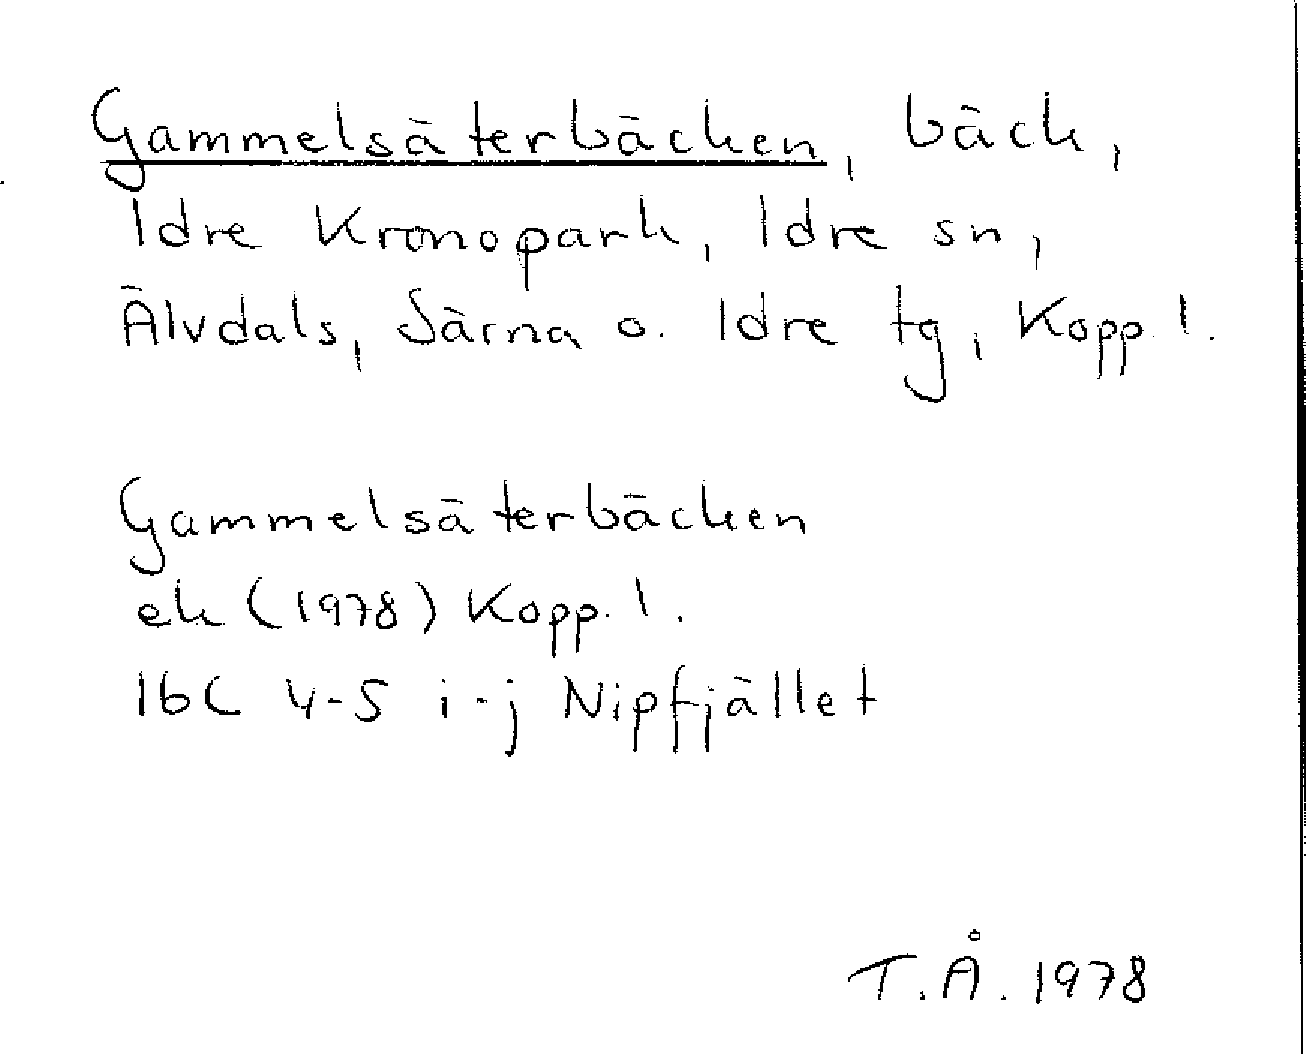 Gammelsäterbäcken, bäck,
Idre Kronopark, Idre sn,
Älvdals, Särna o. Idre tg, Kopp. l.
Gammelsäterbäcken
ek (1978) Kopp. l.
16C 4-5 i-j Nipfjället
T.Å. 1978